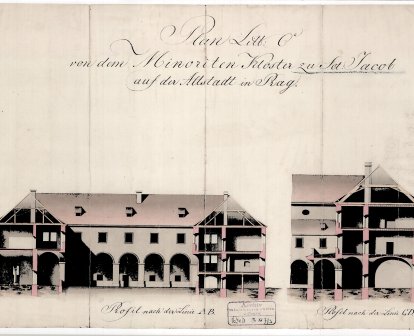 Plan Litt. C
von dem Minoriten Kloster zu Sct Jacob
auf der Altstadt in Prag.
Profil nach der Linie A B.
Profil nach der Linie C D